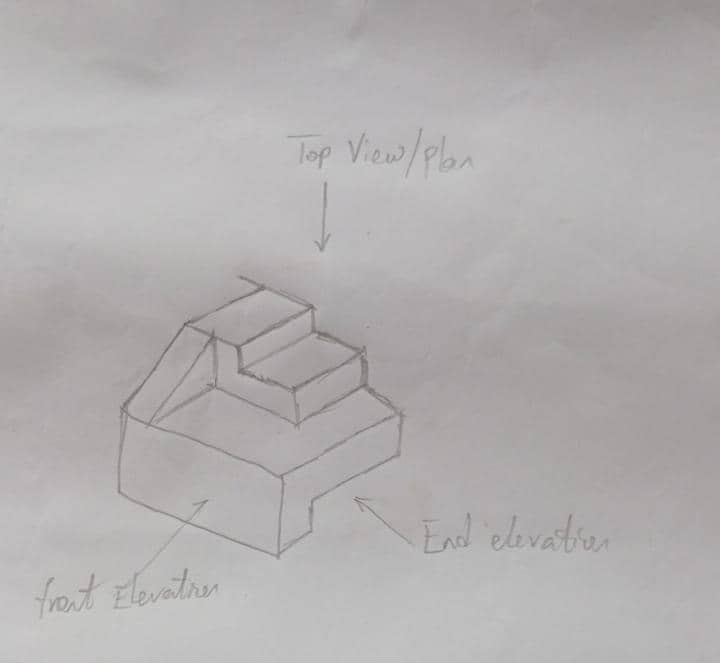 Top View/plan
End elevation
front Elevation